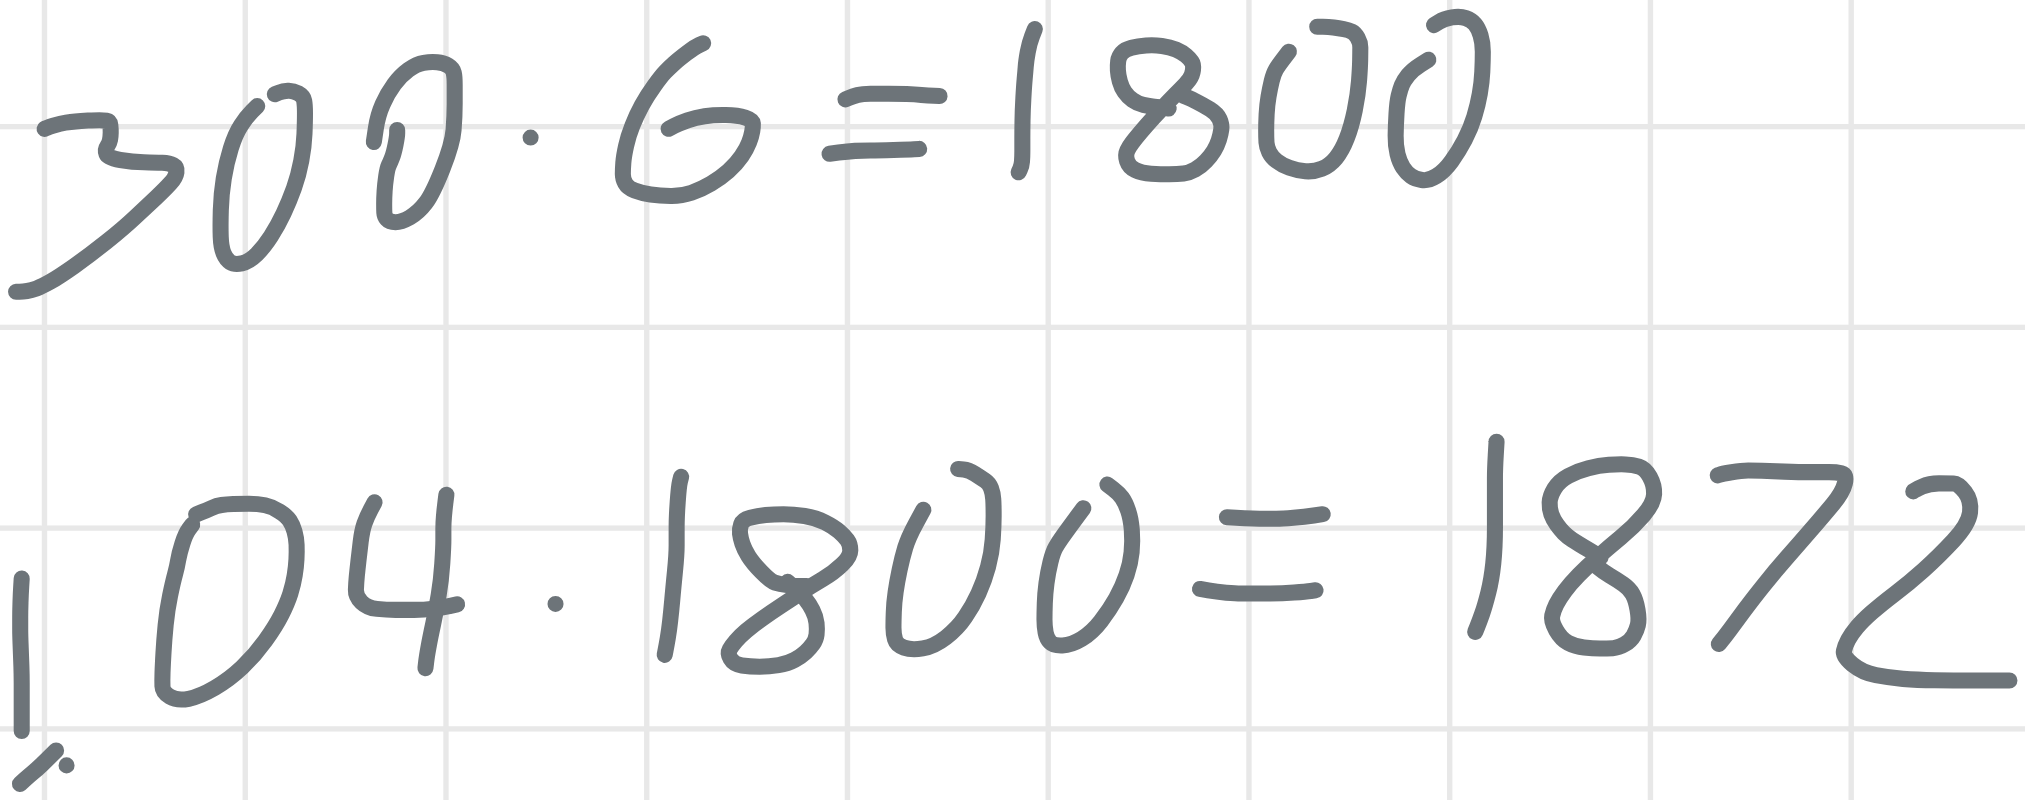 300 · 6 = 1800
1,04 · 1800 = 1872